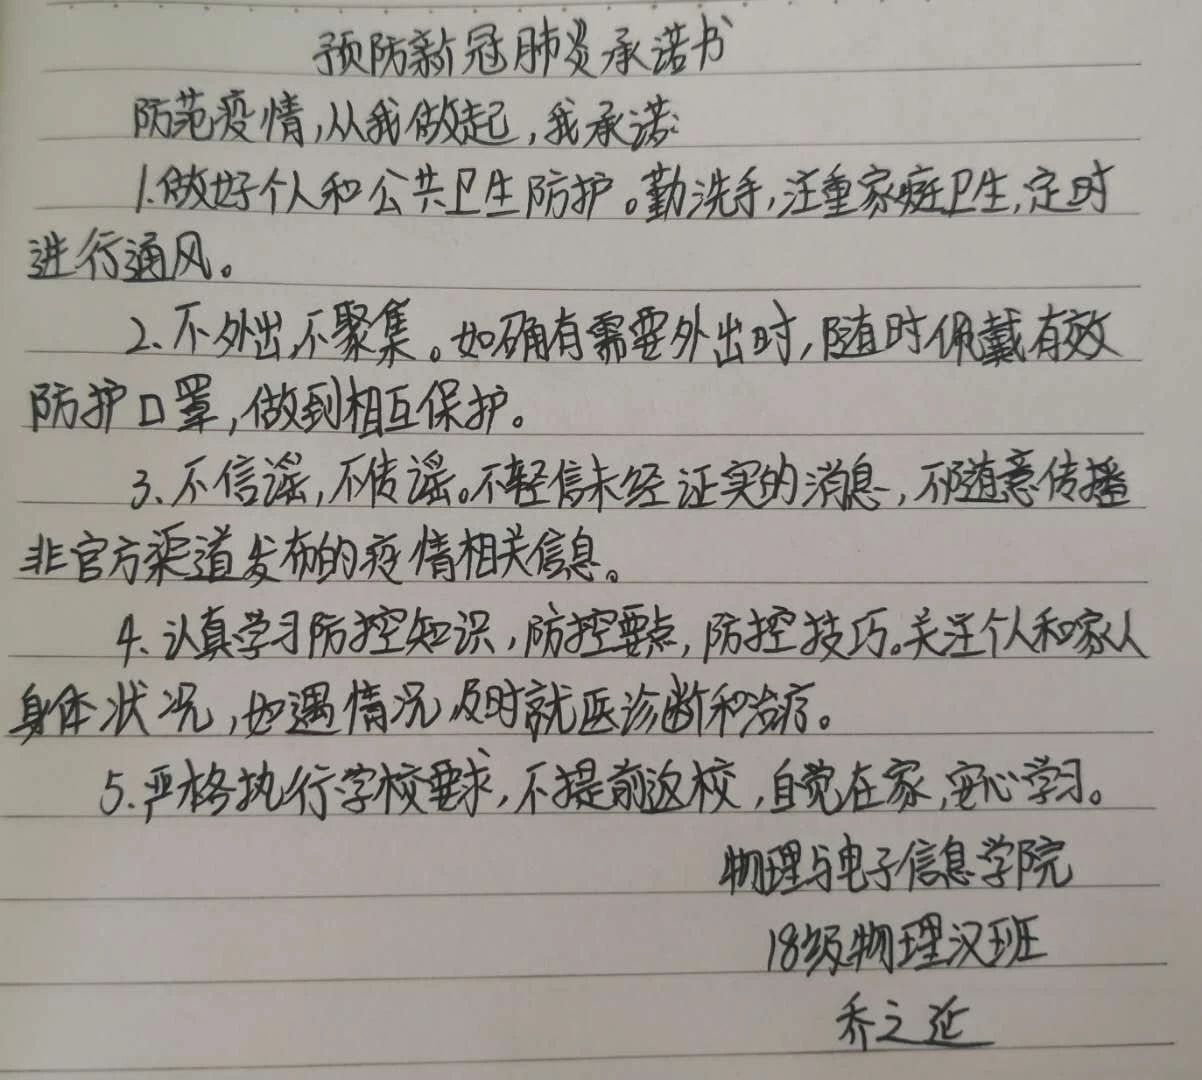 预防新冠肺炎承诺书
防范疫情,从我做起,我承诺:
1.做好个人和公共卫生防护。勤洗手,注重家庭卫生,定时
进行通风。
2、不外出,不聚集。如确有需要外出时,随时佩戴有效
防护口罩,做到相互保护。
3、不信谣,不传谣。不轻信未经证实的消息,不随意传播
非官方渠道发布的疫情相关信息。
4、认真学习防控知识,防控要点,防控技巧。关注个人和家人
身体状况,如遇情况及时就医诊断和治疗。
5.严格执行学校要求,不提前返校,自觉在家,安心学习。
物理与电子信息学院
18级物理汉班
乔之延